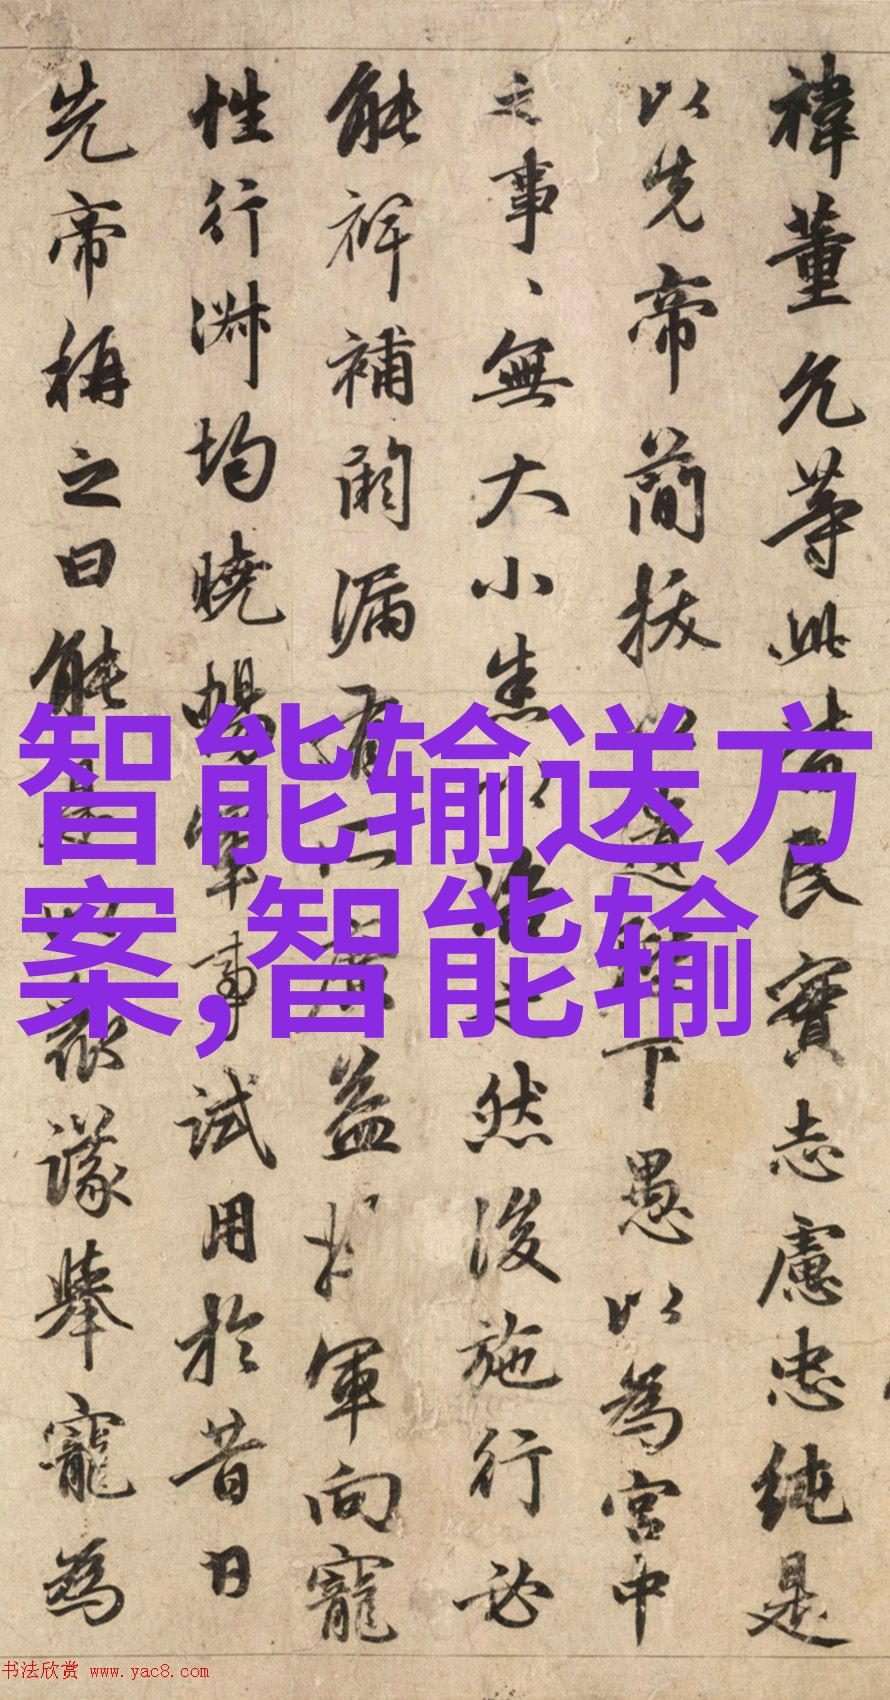 禕董允等此皆良實志慮忠純是
以先帝簡拔以遺陛下愚以為宮中
之事、無大小悉以咨之然後施行必
能裨補闕漏有所廣益將軍向寵
性行淑均曉暢軍事試用於昔日
先帝稱之曰能是以眾議舉寵為
智能输送方
案,智能输
书法欣赏 www.yac8.com